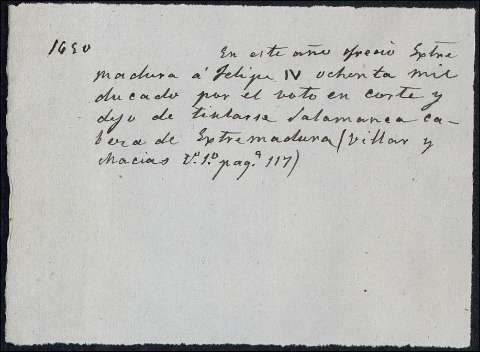 1650 En este año ofreció Extre
madura á Felipe IV ochenta mil
ducado por el voto en corte y
dejo de titularse Salamanca ca-
beza de Extremadura (Villar y
Macias V.º 1.º pag.ª 117)